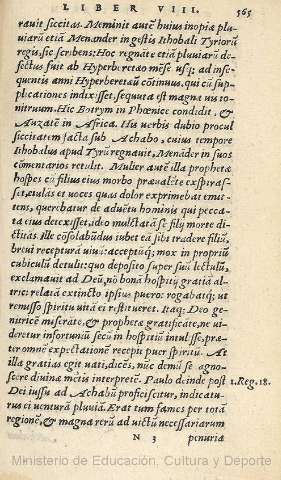 LIBER VIII. 565
rauit siccitas. Meminit autē huius inopiæ plu
uiarū etiā Menander in gestis Ithobali Tyriorū
regis, sic scribens; Hoc regnāte etiā pluuiarū de-
fectus fuit ab Hyperberetæo mēse usq; ad inse-
quentis anni Hyperberetæū cōtinuus, qui cū sup-
plicationes indixisset, sequuta est magna uis to-
nitruum. Hic Botrym in Phœnice condidit, &
Auzatē in Africa. His uerbis dubio procul
siccitatem facta sub Achabo, cuius tempore
Ithobalus apud Tyrū regnauit, Menāder in suos
cōmentarios retulit. Mulier autē illa prophetæ
hospes cū filius eius morbo præualēte expirasf-
set, eiulās et uoces quas dolor exprimebat emit-
tens, querebatur de aduētu hominis qui pecca-
ta eius detexisset, ideo mulctatā se filij morte di-
ctitās. Ille cōsolabūdus iubet eā sibi tradere filiū,
breui recepturā uiuū: acceptūq; mox in propriū
cubiculū detulit: quo deposito super suū lectulū,
exclamauit ad Deū, nō bonā hospitę gratiā al-
tric: relatā extincto ipsius puero: rogabatq; ut
remisso spiritu uitā ei restitueret. Itaq; Deo ge-
nitricē miserāte, & prophetæ gratificāte, ne ui-
deretur infortuniū secū in hospitiū intulisse, præ-
ter omnē expectationē recepit puer spiritū. At
illa gratias egit uati, dicēs, nūc demū se agno-
scere diuinæ mētis interpretē. Paulo deinde post 1. Reg. 18.
Dei iussu ad Achabū proficiscitur, indicatu-
rus ei uenturā pluuiā. Erat tum fames per totā
regionē, & magna rerū ad uictū necessariarum
N 3 penuria
Ministerio de Educación, Cultura y Deporte